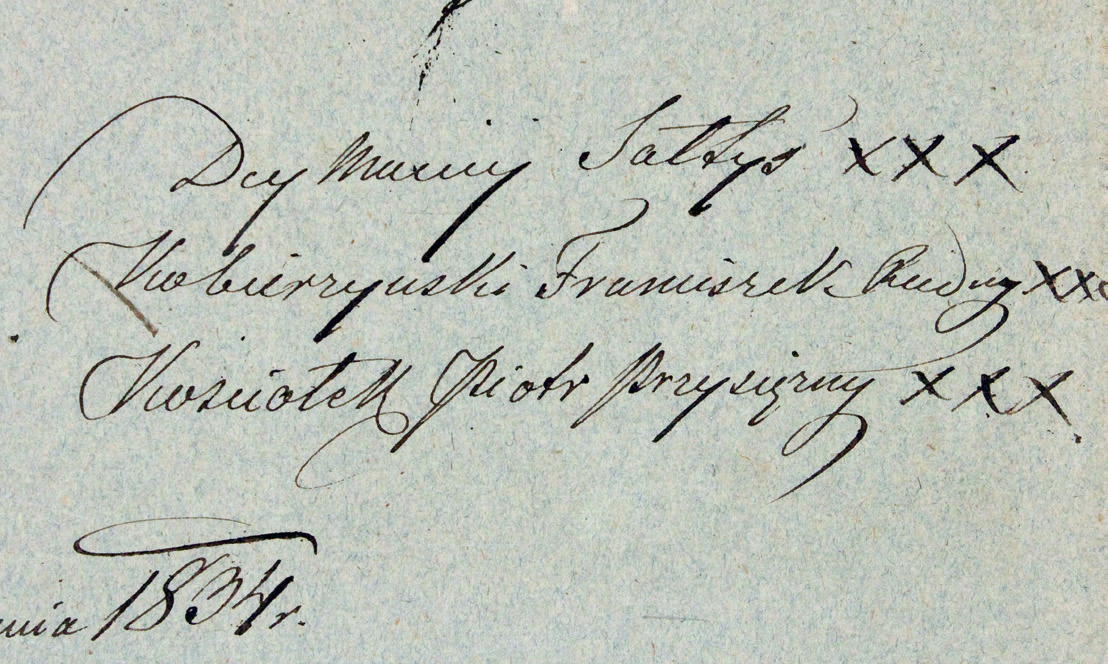 Dey Maciej Sałtys XXX
Kobierzynski Franciszek Radny XXX
Kościołek Piotr Przysiężny XXX
1834 r.